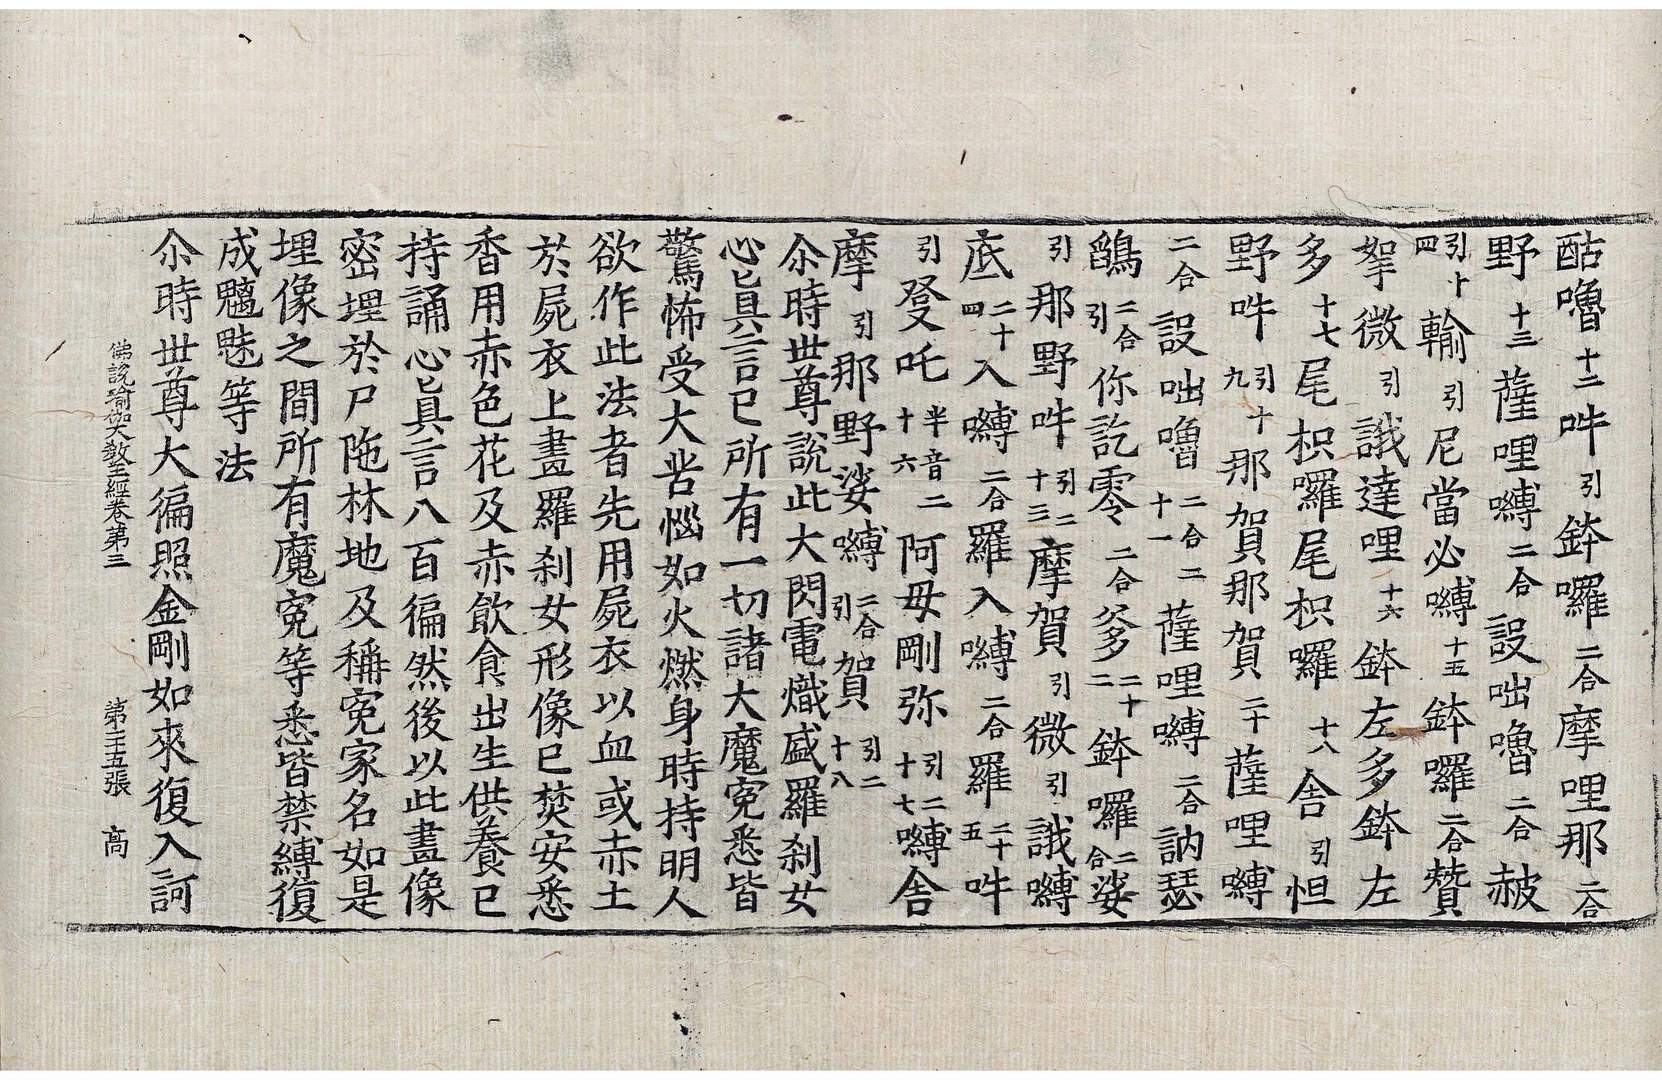 酤嚕十二吽引鉢囉二合摩哩那二合
野十三薩哩嚩二合設咄嚕二合赦
引十四輸引尼當必嚩十五鉢囉二合贊
拏微引誐達哩十六鉢左多鉢左
多十七尾枳囉尾枳囉十八舍引怛
野吽引十九那賀那賀二十薩哩嚩
二合設咄嚕二合二十一薩哩嚩二合訥瑟
鷂二合引你訖零二合爹二十二鉢囉二合娑
引那野吽引二十三摩賀引微引誐嚩
底二十四入嚩二合羅入嚩二合羅二十五吽
引發吒半音二十六阿毋剛弥引二十七嚩舍
摩引那野娑嚩二合引賀引二十八
尒時世尊說此大閃電熾盛羅刹女
心真言已所有一切諸大魔冤悉皆
驚怖受大苦惱如火燃身時持明人
欲作此法者先用屍衣以血或赤土
於屍衣上畫羅刹女形像已焚安悉
香用赤色花及赤飲食出生供養已
持誦心真言八百徧然後以此畫像
密埋於尸陁林地及稱冤家名如是
埋像之間所有魔冤等悉皆禁縛復
成魍魅等法
尒時世尊大徧照金剛如來復入訶
佛說瑜伽大教王經卷第三 第二十五張 高